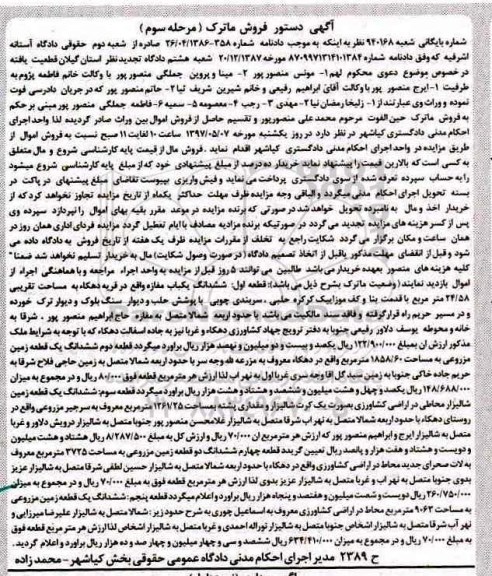 آگهی دستور فروش ماترک ( مرحله سوم )
شماره بایگانی شعبه ۹۴۰۱۶۸ نظر به اینکه به موجب دادنامه شماره ۳۵۸-۲۶/۰۴/۱۳۸۶ صادره از شعبه دوم حقوقی دادگاه آستانه
اشرفیه که وفق دادنامه شماره ۸۷۰۹۹۷۱۳۱۴۰۱۳۸۴ مورخه ۲۰/۱۲/۱۳۸۷ شعبه هشتم دادگاه تجدید نظر استان گیلان قطعیت یافته
در خصوص موضوع دعوی محکوم لهم ۱- مونس منصور پور ۲- مینا و پروین جملگی منصور پور با وکالت خانم فاطمه پژوم به
طرفیت ۱- ایرج منصور پور با وکالت آقای ابراهیم رفیعی و خانم شیرین شریف نیا ۲- حاتم منصور پور که در جریان دادرسی فوت
نموده و وراث وی عبارتند از ۱- زلیخا رمضان نیا ۲- مهدی ۳- رجب ۴- معصومه ۵- سمیه ۶- فاطمه جملگی منصور پور مبنی بر حکم
به فروش ماترک حین الفوت مرحوم محمد علی منصورپور و تقسیم حاصل از فروش اموال بین وراث صادر گردیده لذا واحد اجرای
احکام مدنی دادگستری کیاشهر در نظر دارد در روز یکشنبه مورخه ۱۳۹۷/۰۵/۰۷ ساعت ۱۰ لغایت ۱۱ صبح نسبت به فروش اموال از
طریق مزایده در واحد اجرای احکام مدنی دادگستری کیاشهر اقدام نماید . فروش مال از قیمت پایه کارشناسی شروع و مال متعلق
به کسی است که بالاترین قیمت را پیشنهاد نماید خریدار ده درصد از مبلغ پیشنهادی خود که از مبلغ پایه کارشناسی شروع میشود
را به حساب سپرده تعرفه شده از سوی دادگستری پرداخت می نماید و فیش واریزی بپیوست تقاضای مبلغ پیشنهای در پاکت در
بسته تحویل اجرای احکام مدنی میگردد و الباقی وجه مزایده ظرف مهلت حداکثر یکماه از تاریخ مزایده تجاوز نخواهد کرد که از
خریدار اخذ و مال به نامبرده تحویل خواهد شد در صورتی که برنده مزایده در موعد مقرر بقیه بهای اموال را نپردازد سپرده وی
پس از کسر هزینه های مزایده تجدید می گردد در صورتیکه برنده مزایده مصادف با ایام تعطیل گردد مزایده فردای اداری همان روز در
همان ساعت و مکان برگزار می گردد شکایت راجع به تخلف از مقررات مزایده ظرف یک هفته از تاریخ فروش به دادگاه داده می
شود و قبل از انقضای مهلت مذکور یا قبل از اتخاذ تصمیم دادگاه ( در صورت وصول شکایت) مال به خریدار تسلیم نخواهد شد ضمنا"
کلیه هزینه های منصور بعهده خریدار می باشد طالبین می توانند ۵ روز قبل از مزایده به واحد اجراء مراجعه و با هماهنگی اجراء از
اموال بازدید نمایند ( وضعیت ماترک بشرح ذیل می باشد): قطعه اول: ششدانگ یکباب مغازه واقع در قریه دهکاء به مساحت تقریبی
۲۴/۵۸ متر مربع با قدمت بنا و کف موزائیک کرکره حلبی ، سربندی چوبی با پوشش حلب و دیوار سنگ بلوک و دیوار ترک خورده
و در مسیر حریم راه قرار گرفته و فاقد سند مالکیت می باشد با حدود اربعه شمالا متصل به مغازه حاج ابراهیم منصور پور ، شرقا به
خانه و محوطه یوسف دلاور رفیعی جنوبا به دفتر ترویج جهاد کشاورزی دهکاء و غربا نیز به جاده اسفالت دهکاء که با توجه به شرایط ملک
مذکور ارزش آن بمبلغ ۱۲۲/۹۰۰/۰۰۰ ریال یکصد و بیست و دو میلیون و نهصد هزار ریال براورد میگردد قطعه دوم ششدانگ یک قطعه زمین
مزروعی به مساحت ۱۸۵۸/۶۰ مترمربع واقع در دهکاء معروف به مزرعه لله وجه سر با حدود اربعه شمالا متصل به زمین حاجی فلاح شرقا به
حریم جاده خاکی جنوبا به زمین سید گل آقا وجه سری غربا اول به نهر آب لذا ارزش هر متر مربع قطعه فوق ۸۰/۰۰۰ ریال و در مجموع به میزان
۱۴۸/۶۸۸/۰۰۰ ریال یکصد و چهل و هشت میلیون و ششصد و هشتاد و هشت هزار ریال براورد میگردد قطعه سوم: ششدانگ یک قطعه زمین
شالیزار محاطی در اراضی کشاورزی بصورت یک کرت شالیزار و مقداری نیز توتستان به مساحت ۱۲۶۱/۲۵ مترمربع معروف به سرجیر مزروعی واقع در
روستای دهکاء با حدود اربعه شمالا متصل به نهر آب شرقا متصل به شالیزار غلامحسن منصور پور جنوبا متصل به شالیزار درویش دلاور و غربا
متصل به شالیزار ایرج و ابراهیم منصور پور که ارزش هر مترمربع آن ۷۰/۰۰۰ ریال و ارزش کل به مبلغ ۸/۲۸۷/۵۰۰ ریال هشتاد و هشت میلیون
و دویست و هشتاد و هفت هزار و پانصد ریال تعیین گردید قطعه چهارم ششدانگ دو قطعه زمین مزروعی به مساحت ۳۷۲۵ مترمربع معروف
به لات صحرای جدید محاط در اراضی کشاورزی واقع در دهکاء با حدود اربعه شمالا متصل به شالیزار حسین لطفی شرقا متصل به شالیزار عزیز
بدوی جنوبا متصل به نهر آب و غربا متصل به شالیزار عزیز بدوی لذا ارزش هر متر مربع قطعه فوق به مبلغ ۷۰/۰۰۰ ریال و در مجموع به میزان
۲۶۰/۷۵۰/۰۰۰ ریال دویست و شصت میلیون و هفتصد و پنجاه هزار ریال براورد و اعلام میگردد قطعه پنجم: ششدانگ یک قطعه زمین مزروعی
به مساحت ۹۰۶۳ متر مربع محاط در اراضی کشاورزی معروف به اسماعیل چوری به شرح حدود زیر: شمالا متصل به شالیزار علیرضا میرزایی و
نهر آب شرقا متصل به شالیزار اشخاص جنوبا متصل به شالیزار نوراله احمدی و غربا متصل به شالیزار اشخاص لذا ارزش هر متر مربع قطعه فوق
به مبلغ ۷۰/۰۰۰ ریال و در مجموع به میزان ۶۳۴/۴۱۰/۰۰۰ ریال ششصد و سی و چهار میلیون و چهار صد و ده هزار ریال براورد و اعلام گردید.
ح ۲۳۸۹ مدیر اجرای احکام مدنی دادگاه عمومی حقوقی بخش کیاشهر - محمد زاده